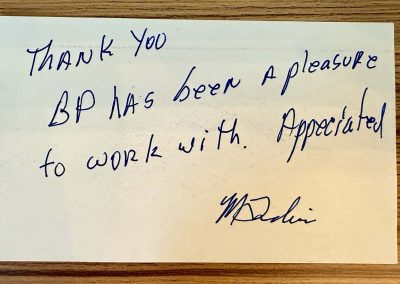 THANK YOU
BP has been a pleasure
to work with. Appeciated